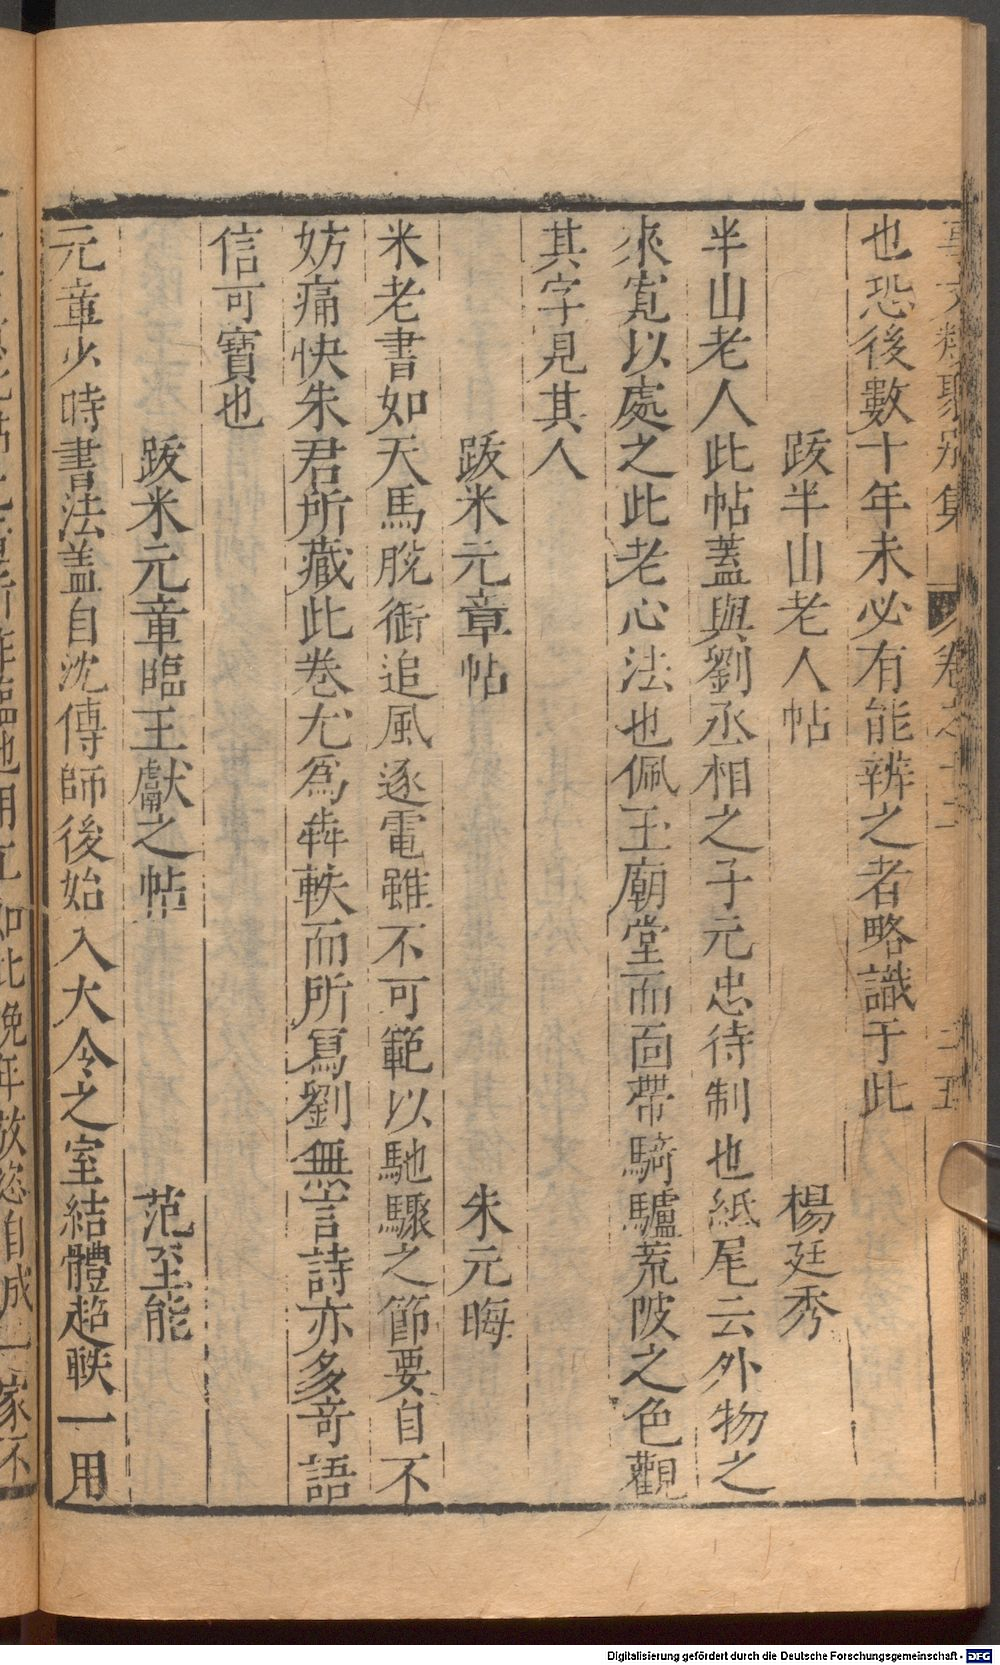 事文類聚別集 卷之十二 二五
也恐後數十年未必有能辨之者略識于此
跋半山老人帖 楊廷秀
半山老人此帖蓋與劉丞相之子元忠待制也紙尾云外物之
來寬以處之此老心法也佩玉廟堂而面帶騎驢荒陂之色觀
其字見其人
跋米元章帖 朱元晦
米老書如天馬脫銜追風逐電雖不可範以馳驟之節要自不
妨痛快朱君所藏此卷尤為犇軼而所寫劉無言詩亦多奇語
信可寶也
跋米元章臨王獻之帖 范至能
元章少時書法盖自沈傳師後始入大令之室結體超軼一用
如此晚年放恣自成一家不
Digitalisierung gefördert durch die Deutsche Forschungsgemeinschaft - DFG